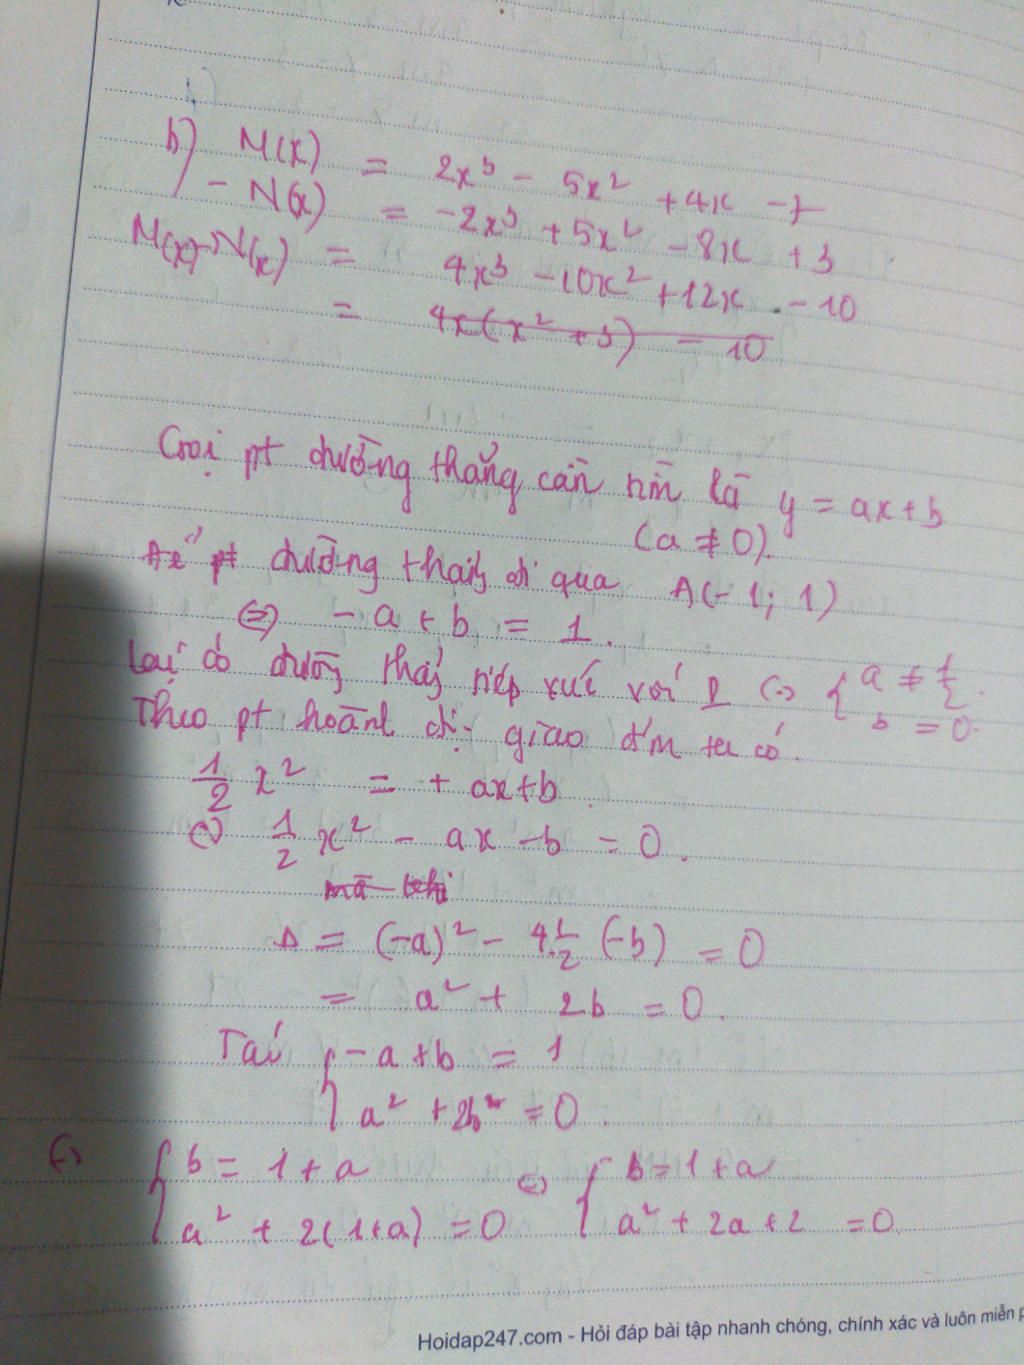 b) M(x) = 2x³ - 5x² + 4x - 7
- N(x) = -2x³ + 5x² - 8x + 3
M(x)-N(x) = 4x³ - 10x² + 12x - 10
= 4x(x² + 3) - 10
Gọi pt đường thẳng cần tìm là y = ax + b
(a ≠ 0).
pt đường thẳng đi qua A(-1; 1)
<=> -a + b = 1.
Lại có đường thẳng tiếp xúc với P <=> { a ≠ 1/2.
b = 0.
Theo pt hoành độ giao điểm ta có.
1/2 x² = + ax + b
<=> 1/2 x² - ax - b = 0.
Δ = (-a)² - 4.1/2 (-b) = 0
= a² + 2b = 0.
{ -a + b = 1
a² + 2b = 0.
<=> { b = 1 + a <=> { b = 1 + a
a² + 2(1+a) = 0 a² + 2a + 2 = 0.
Hoidap247.com - Hỏi đáp bài tập nhanh chóng, chính xác và luôn miễn p